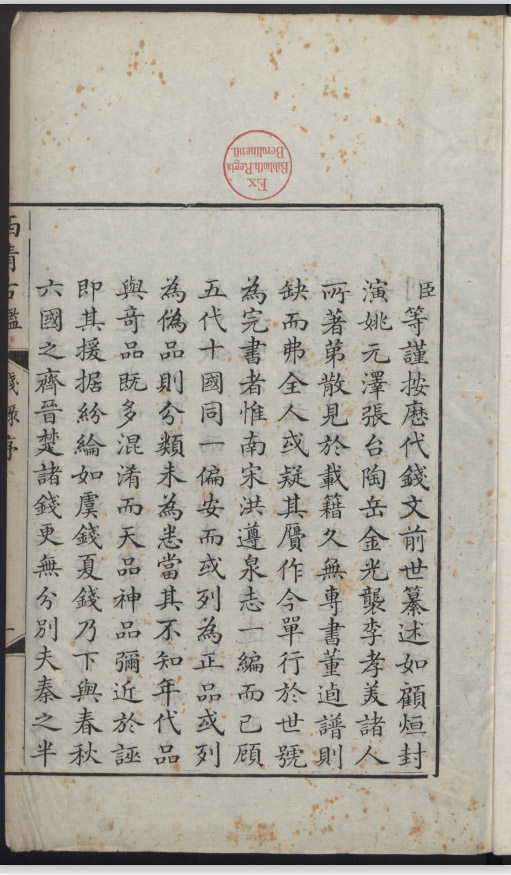 臣等謹按歴代錢文前世纂述如顧烜封
演姚元澤張台陶岳金光襲李孝美諸人
所著苐散見於載籍久無專書董逌譜則
缺而弗全人或疑其贋作今單行於世號
為完書者惟南宋洪遵泉志一編而已顧
五代十國同一偏安而或列為正品或列
為偽品則分類未為悉當其不知年代品
與竒品既多混淆而天品神品彌近於誣
即其援据紛綸如虞錢夏錢乃下與春秋
六國之齊晉楚諸錢更無分别夫秦之半
西清古鑑 錢録序 一
Ex
Biblioth. Regia
Berolinenſi.